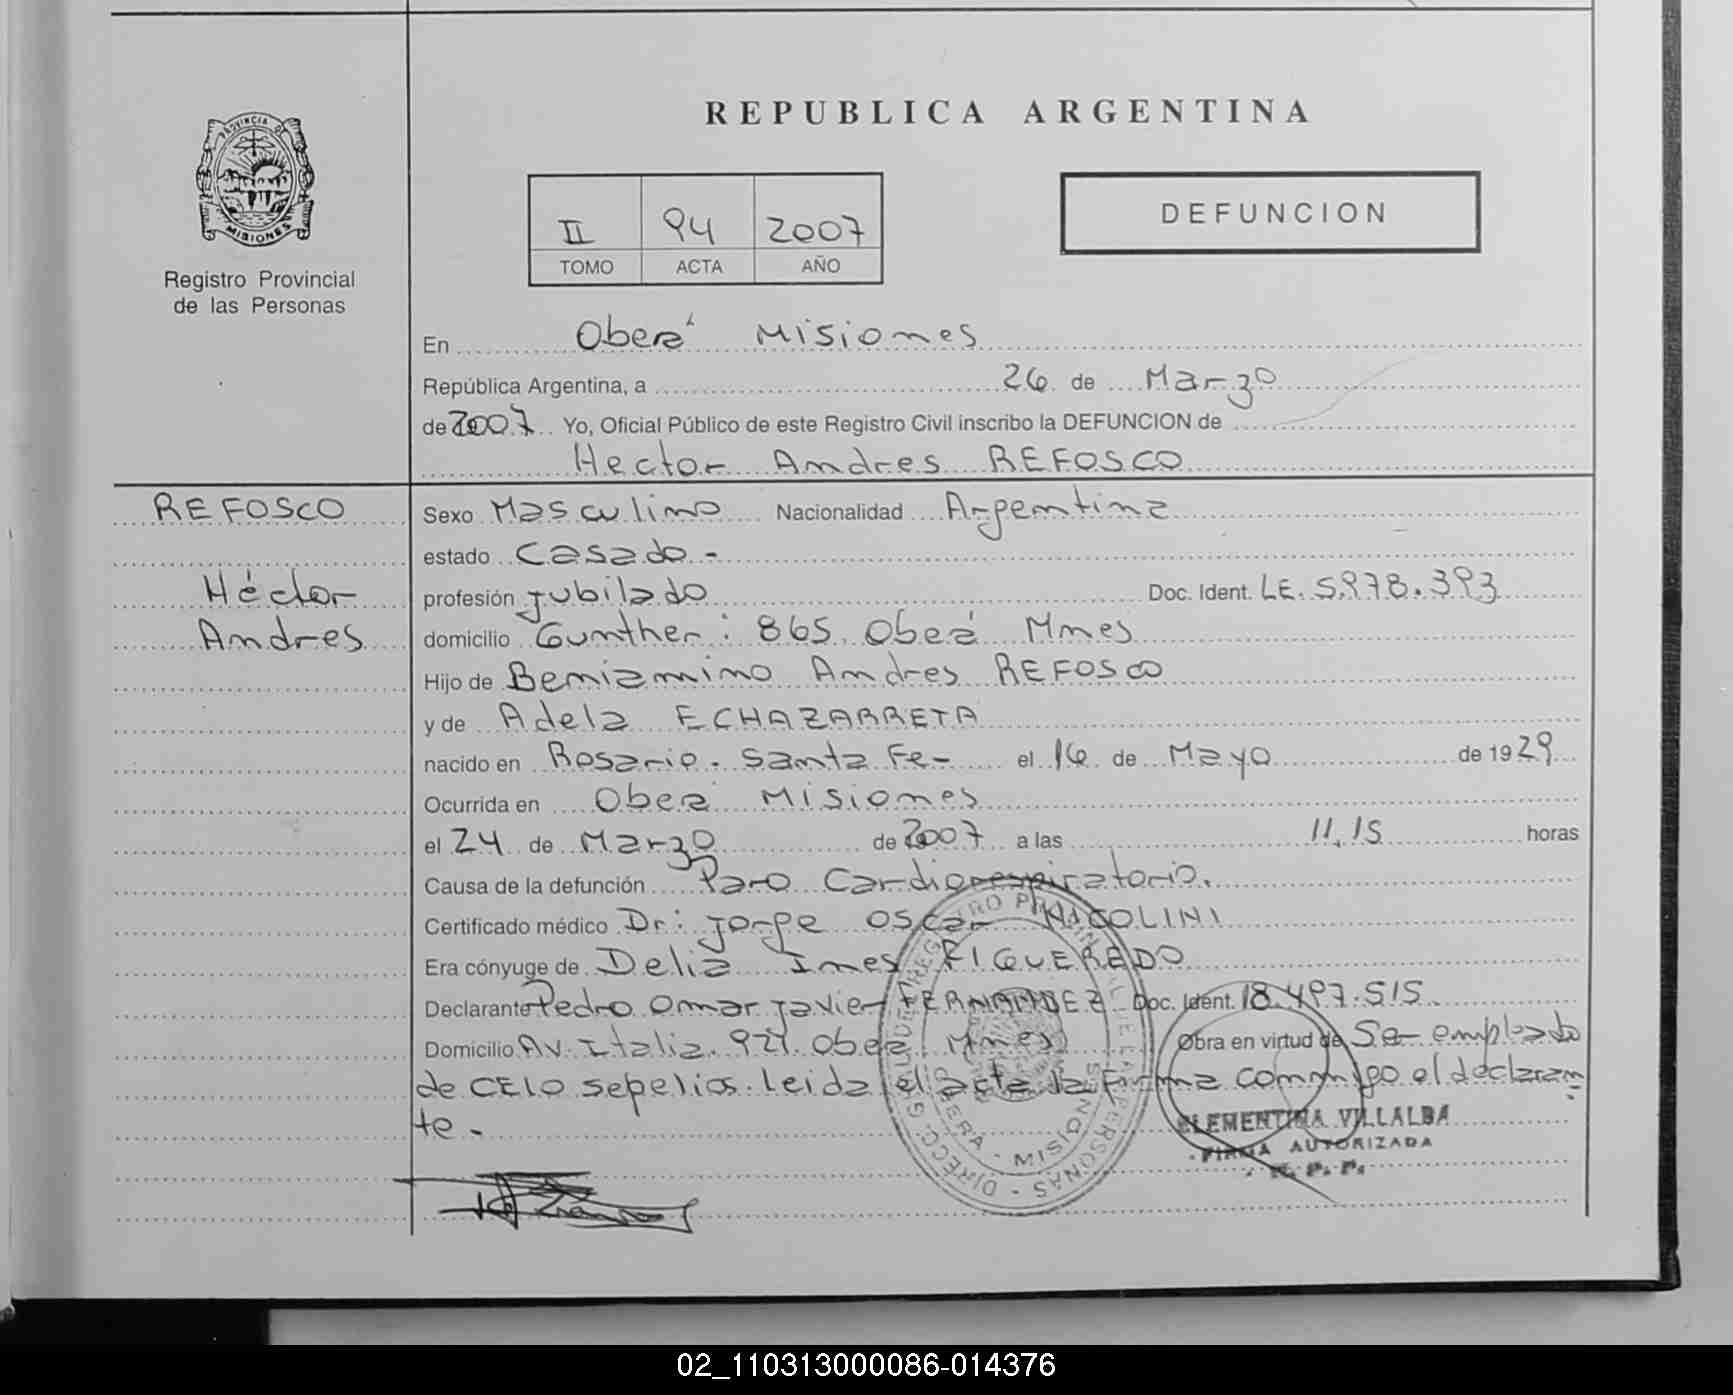 REPUBLICA ARGENTINA
PROVINCIA DE
MISIONES
Registro Provincial
de las Personas
II 94 2007
TOMO ACTA AÑO
DEFUNCION
En Oberá Misiones
República Argentina, a 26 de Marzo
de 2007 Yo, Oficial Público de este Registro Civil inscribo la DEFUNCION de
Hector Andres REFOSCO
REFOSCO
Héctor
Andres
Sexo Masculino Nacionalidad Argentina
estado Casado -
profesión jubilado Doc. Ident. LE. 5.978.393
domicilio Gunther: 865 Oberá Mnes
Hijo de Beniamino Andres REFOSCO
y de Adela ECHAZARRETA
nacido en Rosario. Santa Fe - el 16 de Mayo de 1929
Ocurrida en Oberá Misiones
el 24 de Marzo de 2007 a las 11,15 horas
Causa de la defunción Paro Cardiorespiratorio.
Certificado médico Dr: jorge oscar NICOLINI
Era cónyuge de Delia Ines FIGUEREDO
Declarante Pedro omar javier FERNANDEZ Doc. Ident. 18.497.515
Domicilio Av. Italia. 927. Oberá Mnes Obra en virtud de Ser empleado
de CELO sepelios. Leida el acta la Firma conmigo el declaran
te -
CLEMENTINA VILLALBA
FIRMA AUTORIZADA
R. P. P.
MISIONES
02_110313000086-014376